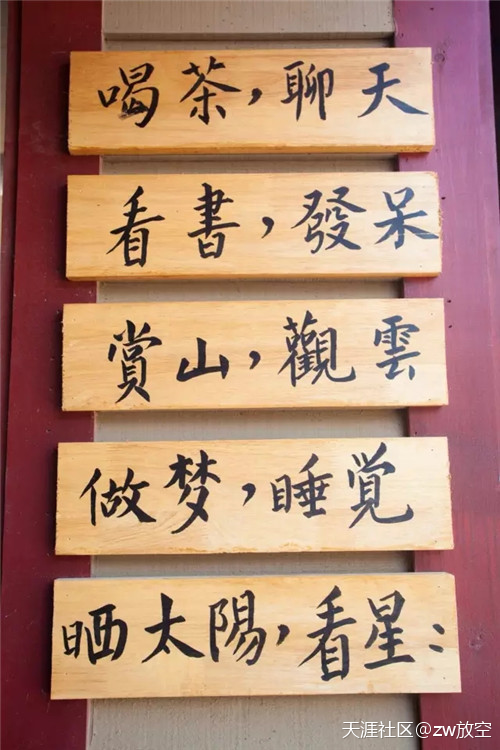 喝茶，聊天
看書，發呆
賞山，觀雲
做梦，睡覚
晒太陽，看星:
天涯社区@zw放空